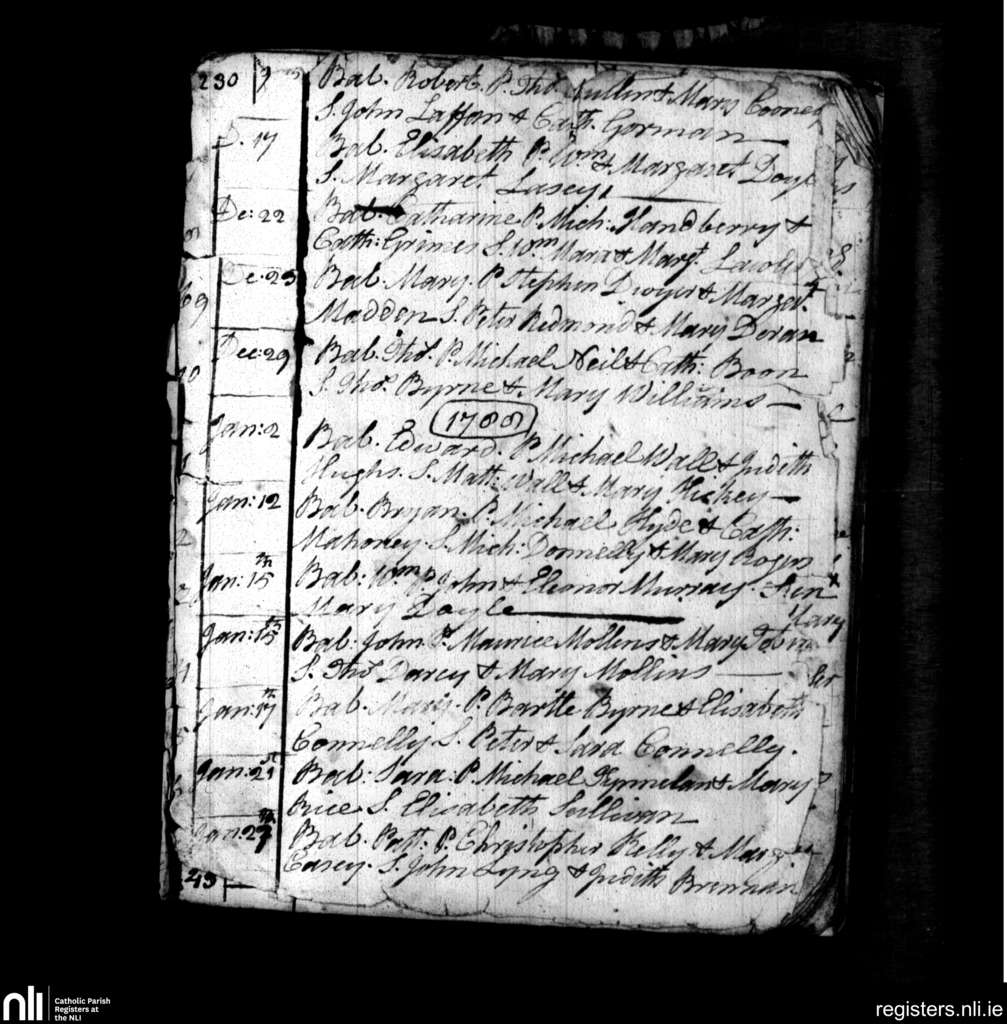 230
Bab. Robert. P. Tho.s Cullin & Mary Cooney
S. John Laffan & Cath. Gorman
D. 17 Bab. Elisabeth P. Wm & Margaret Doyle
S. Margaret Lasey,
De: 22 Bab. Catharine P. Mich: Handberry &
Cath: Grimes S. Wm Mara & Margt.
De: 23 Bab. Mary. P. Stephen Dwyer & Margat.
Madden S. Peter Redmond & Mary Doran
Dec: 29 Bab. Tho.s P. Michael Neil & Cath: Boon
S. Tho.s Byrne & Mary Williams
1788
Jan: 2 Bab. Edward. P. Michael Wall & Judith
Hughs. S. Matt: Wall & Mary Hickey
Jan: 12 Bab. Bryan. P. Michael Hyde & Cath:
Mahoney S. Mich: Donnelly & Mary Rogers
Jan: 15th Bab: Wm P. John & Eleonor Murray.
Mary Doyle
Mary
Jan: 15th Bab. John P. Maurice Mollins & Mary Tobin
S. Tho.s Darcy & Mary Mollins
Jan: 17th Bab. Mary. P. Bartle Byrne & Elisabeth
Connelly S. Peter & Sara Connelly.
Jan: 21st Bab: Sara: P. Michael & Mary
Rice S. Elisabeth Sullivan
Jan: 27th Bab. Patt: P. Christopher Kelly & Marg.
Casey. S. John Lyng & Judith Brennan
43
nli
Catholic Parish
Registers at
the NLI
registers.nli.ie